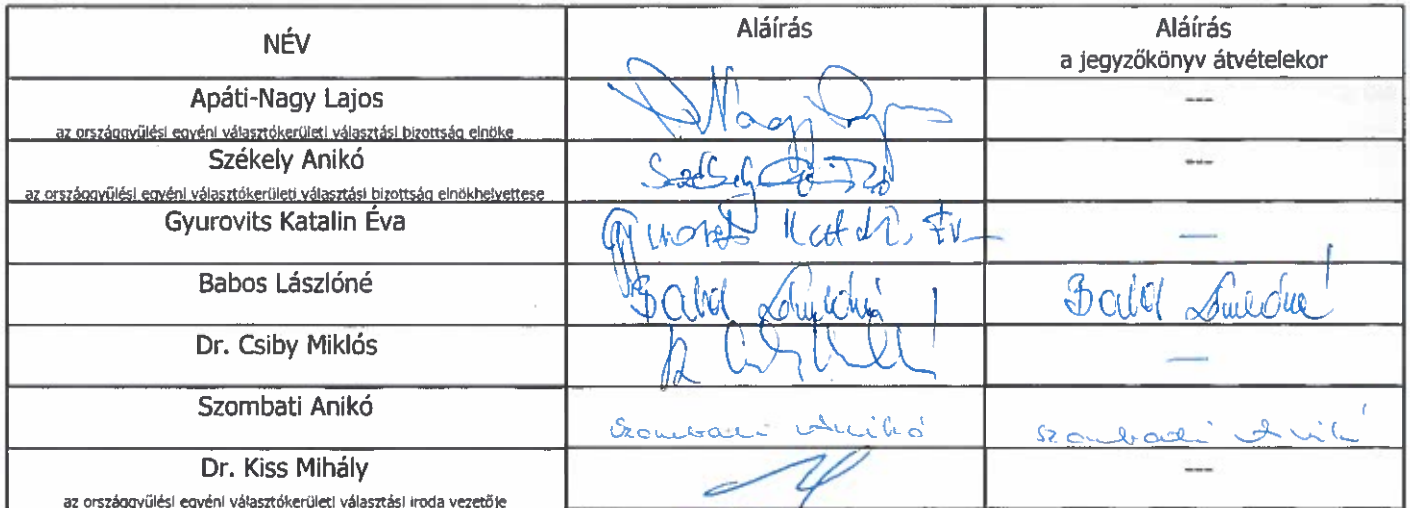 NÉV
Aláírás
Aláírás
a jegyzőkönyv átvételekor
Apáti-Nagy Lajos
az országgyűlési egyéni választókerületi választási bizottság elnöke
---
Székely Anikó
az országgyűlési egyéni választókerületi választási bizottság elnökhelyettese
---
Gyurovits Katalin Éva
—
Babos Lászlóné
Dr. Csiby Miklós
—
Szombati Anikó
Szombati Anikó
Szombati Anikó
Dr. Kiss Mihály
az országgyűlési egyéni választókerületi választási iroda vezetője
---